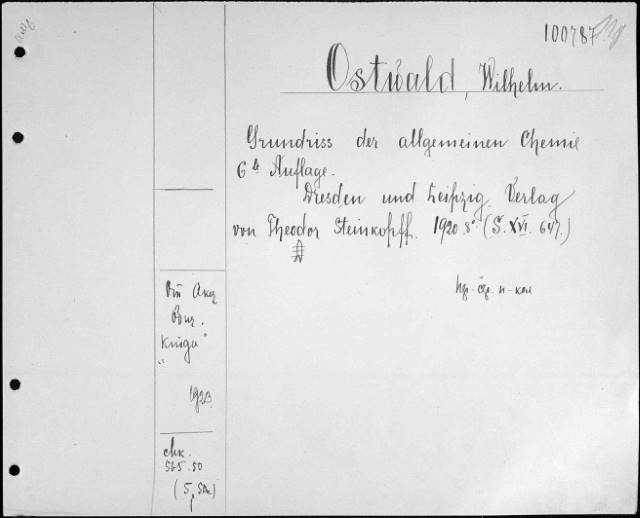 100787
Ostwald, Wilhelm.
Grundriss der allgemeinen Chemie
6te Auflage.
Dresden und Leipzig. Verlag
von Theodor Steinkopff. 1920 8° (S. XVI. 647.)
Kniga"
1923.
chk.
585.50